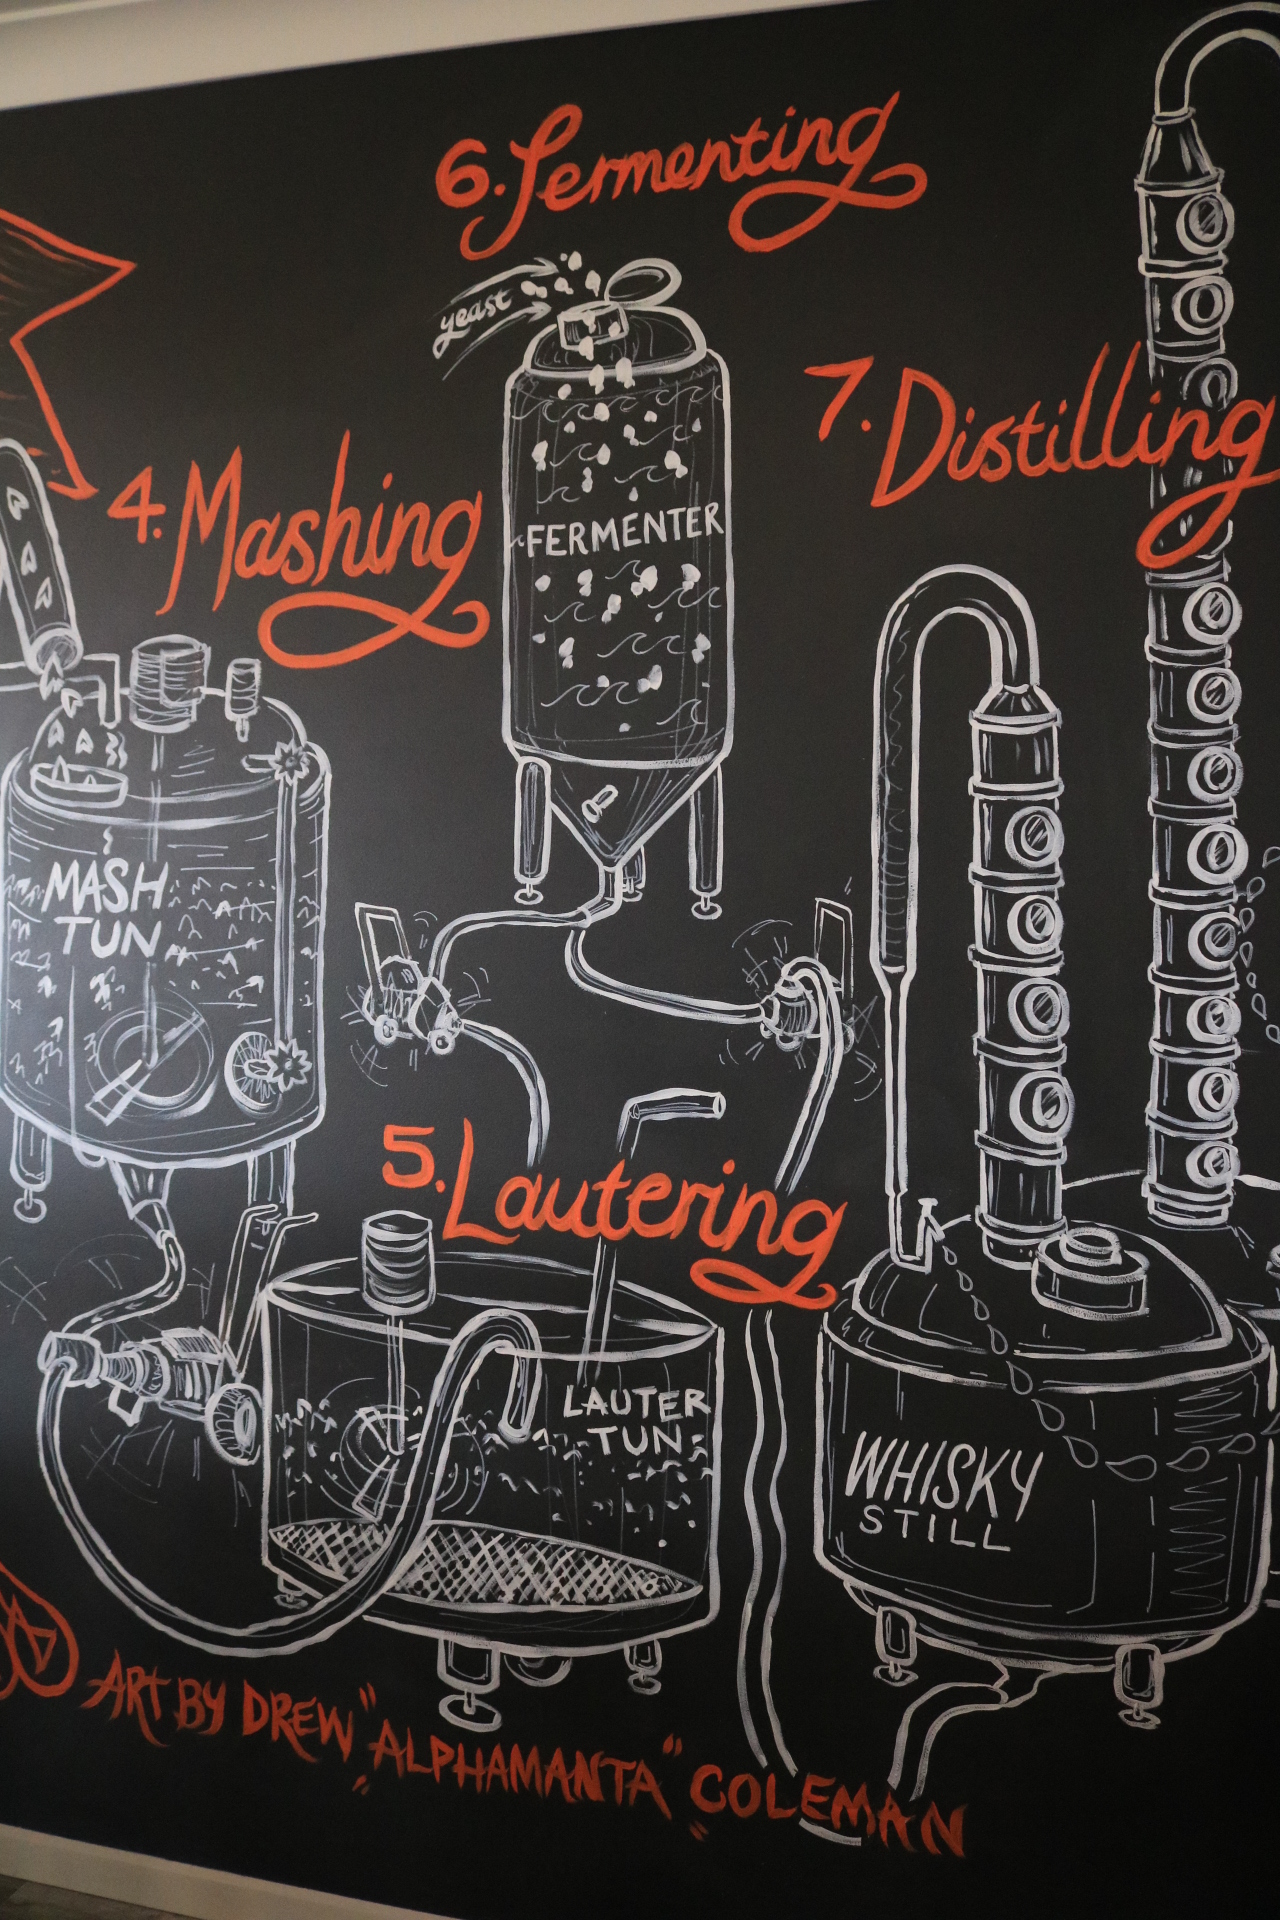 6. Fermenting
yeast
FERMENTER
7. Distilling
4. Mashing
MASH
TUN
5. Lautering
LAUTER
TUN
WHISKY
STILL
ART BY DREW "ALPHAMANTA" COLEMAN